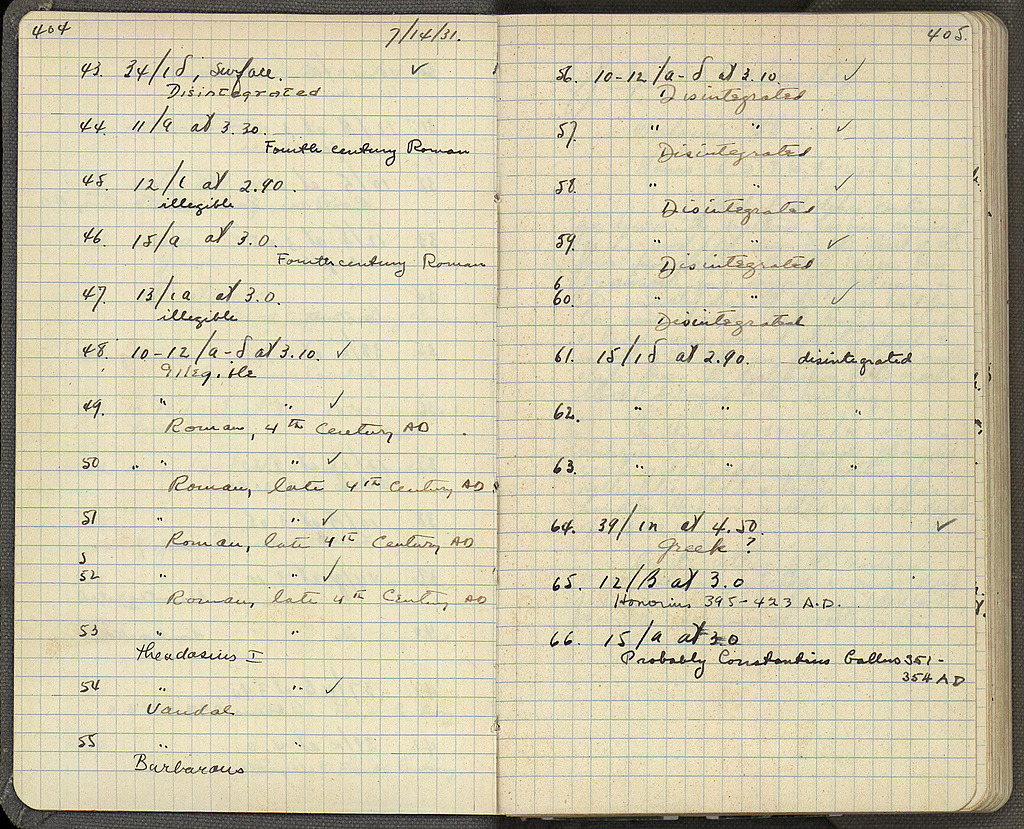 404
7/14/31.
43. 34/ιδ, surface. ✓
Disintegrated
44. 11/α at 3.30.
Fourth century Roman
45. 12/ι at 2.90.
illegible
46. 15/α at 3.0.
Fourth century Roman
47. 13/ια at 3.0.
illegible
48. 10-12/α-δ at 3.10. ✓
Illegible
49. " " ✓
Roman, 4th Century AD.
50 " " " ✓
Roman, late 4th Century AD.
51 " " ✓
Roman, late 4th Century AD
5
52 " " ✓
Roman, late 4th Century AD
53 " "
Theodosius I
54 " " ✓
Vandal
55 " "
Barbarous
405.
56. 10-12/α-δ at 3.10 ✓
Disintegrated
57. " " ✓
Disintegrated
58. " " ✓
Disintegrated
59. " " ✓
Disintegrated
6
60. " " ✓
Disintegrated
61. 15/ιδ at 2.90. disintegrated
62. " " "
63. " " "
64. 39/ιη at 4.50. ✓
Greek?
65. 12/β at 3.0
Honorius 395-423 A.D.
66. 15/α at 3.0
Probably Constantius Gallus 351-
354 AD